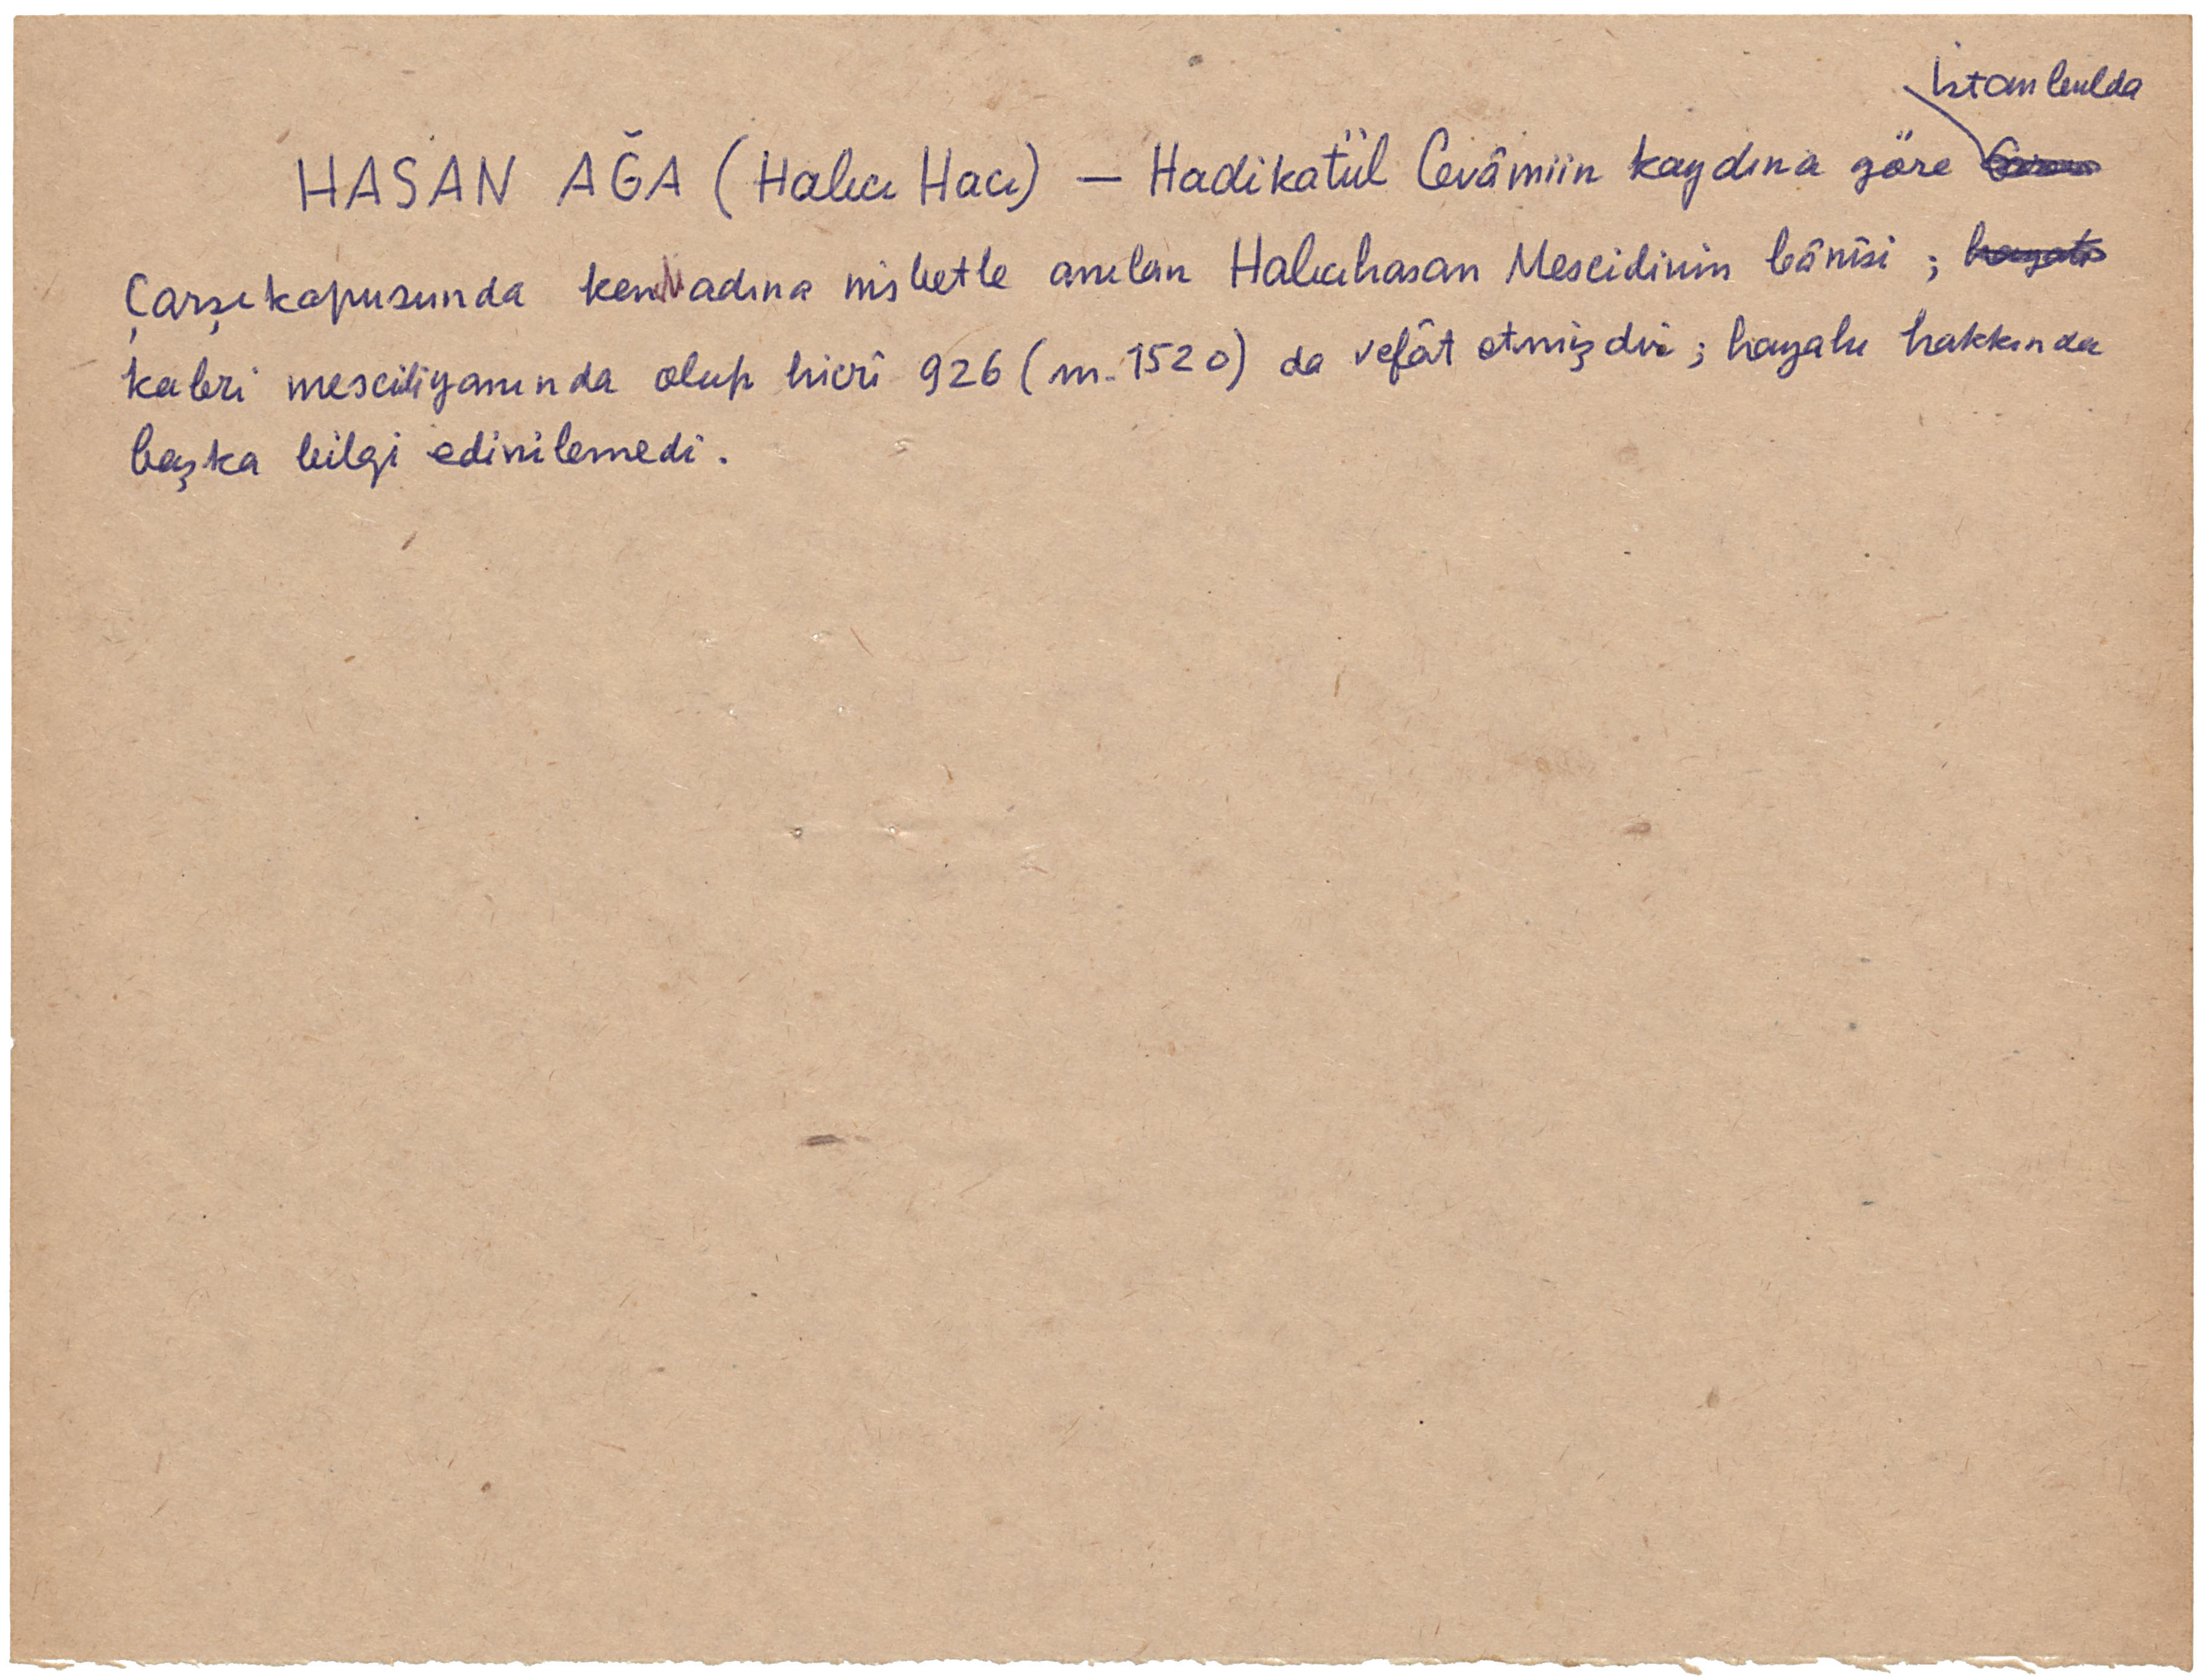 İstanbulda
HASAN AĞA (Halıcı Hacı) — Hadikatül Cevâmiin kaydına göre
Çarşıkapusunda kendi adına nisbetle anılan Halıcıhasan Mescidinin bânîsi ; hayatı
kabri mescidi yanında olup hicrî 926 (m. 1520) da vefât etmişdir ; hayatı hakkında
başka bilgi edinilemedi .